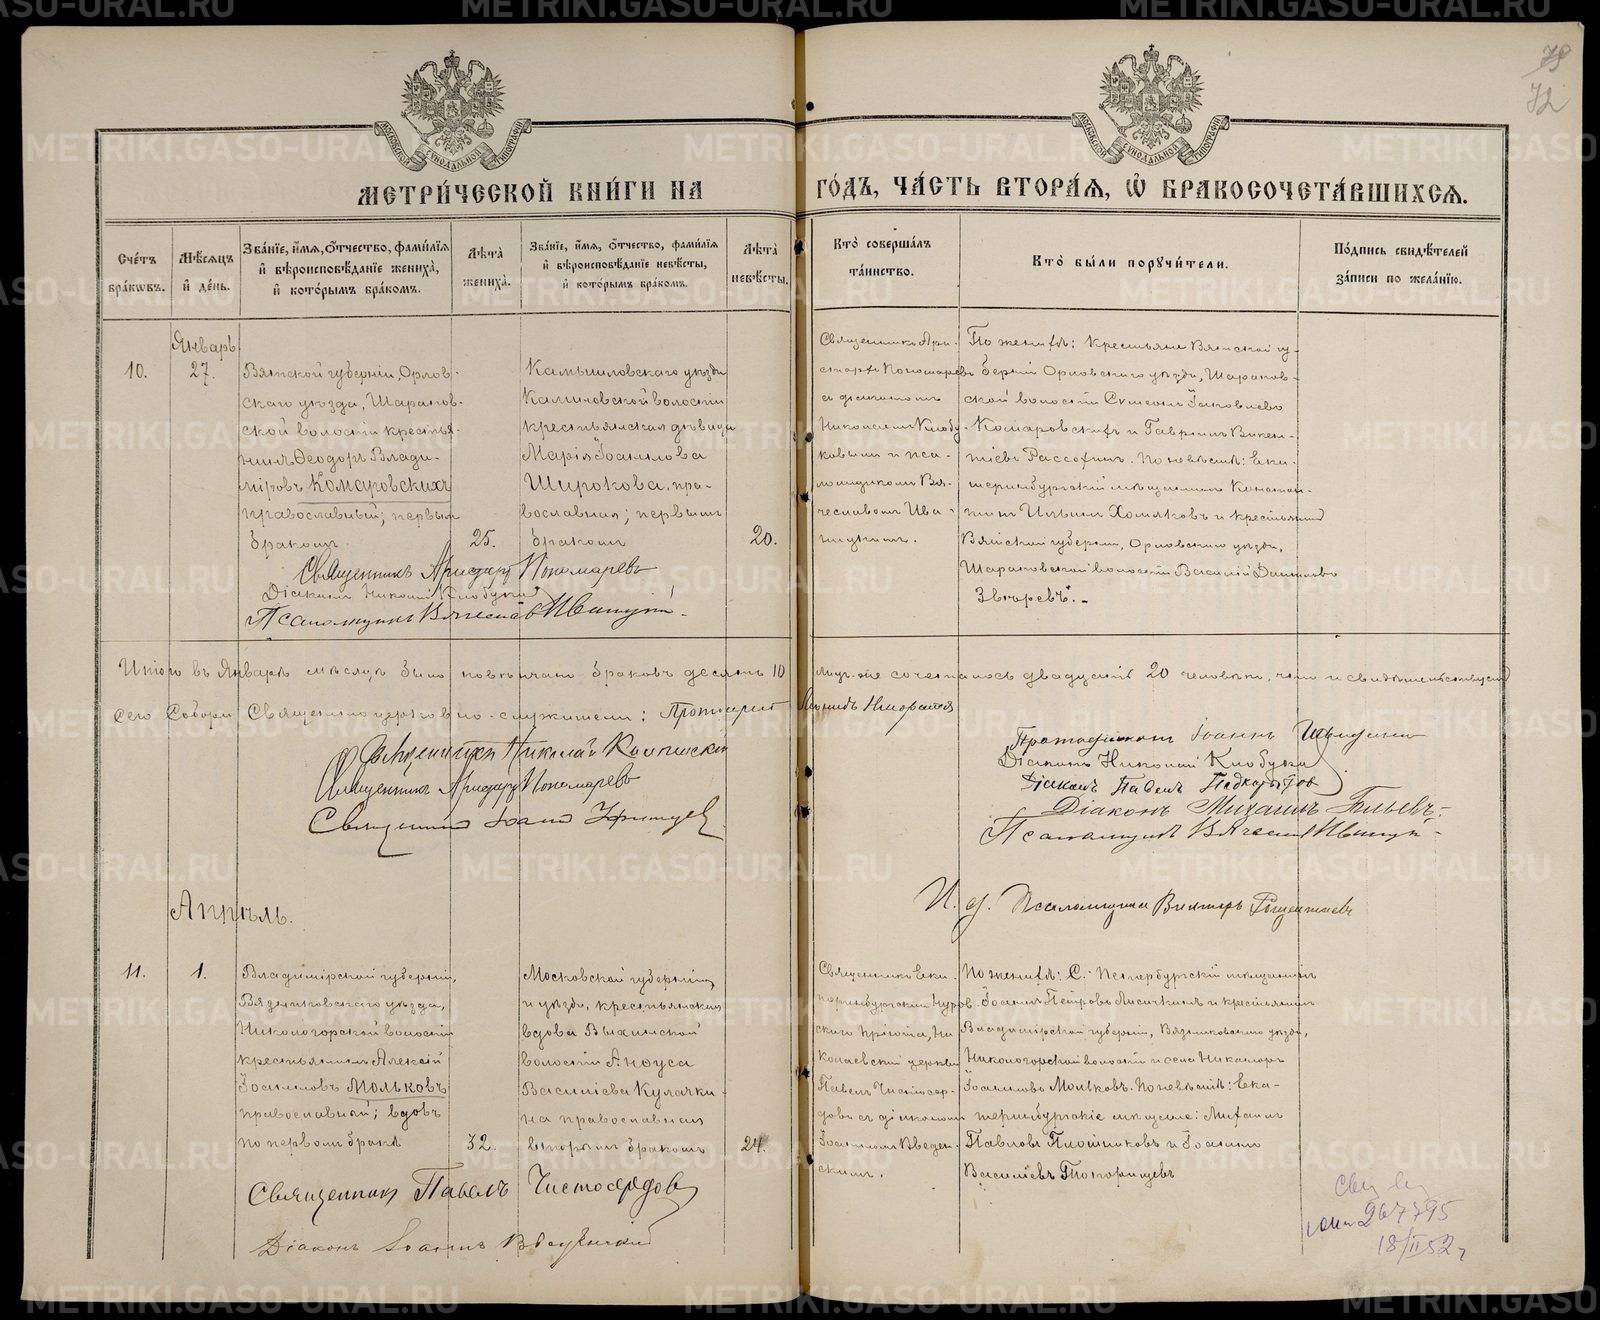 78
72
МОСКОВСКОЙ СѴНОДАЛЬНОЙ ТИПОГРАФІИ
МОСКОВСКОЙ СѴНОДАЛЬНОЙ ТИПОГРАФІИ
МЕТРИ́ЧЕСКОЙ КНИ́ГИ НА
ГО́ДЪ, ЧА́СТЬ ВТОРА́Я, Ѡ БРАКОСОЧЕТА́ВШИХСЯ.
Сче́тъ
бра́кѡвъ.
Мѣ́сяцъ
и҆ де́нь.
Зва́нїе, и҆́мя, ѻ҆́тчество, фами́лїя
и҆ вѣроисповѣ́данїе жениха̀,
и҆ кото́рымъ бра́комъ.
Лѣ́та
жениха̀.
Зва́нїе, и҆́мя, ѻ҆́тчество, фами́лїя
и҆ вѣроисповѣ́данїе невѣ́сты,
и҆ кото́рымъ бра́комъ.
Лѣ́та
невѣ́сты.
Кто̀ соверша́лъ
та́инство.
Кто̀ бы́ли поручи́тели.
По́дпись свидѣ́телей
за́писи по жела́нїю.
Январь
10.
27.
Вятской губерніи, Орлов-
скаго уѣзда, Шарапов-
ской волости крестья-
нинъ Ѳеодоръ Влади-
міровъ Комаровскихъ
православный; первым
бракомъ
25.
Камышловскаго уѣзда
Калиновской волости
крестьянская дѣвица
Марія Іоаннова
Широкова, пра-
вославная; первымъ
бракомъ
20.
Священникъ Ари-
стархъ Пономаревъ
съ діакономъ
Николаемъ Клобу-
ковымъ и пса-
ломщикомъ Вя-
чеславомъ Ива-
По женихѣ: крестьяне Вятской гу-
берніи Орловскаго уѣзда, Шарапов-
ской волости Симеонъ Іаковлевъ
Комаровскихъ и Гавріилъ Викен-
тіевъ Рассохинъ. По невѣстѣ: Ека-
теринбургскій мѣщанинъ Констан-
тинъ Ильинъ Хомяковъ и крестьянинъ
Вятской губерніи, Орловскаго уѣзда,
Шараповской волости Василій Даниловъ
Звѣревъ.
Священникъ Аристархъ Пономаревъ
Діаконъ Николай Клобуковъ
Псаломщикъ Вячеславъ
Итого въ Январѣ мѣсяцѣ было повѣнчано браковъ десять 10
лицъ же сочеталось двадцать 20 человѣкъ, чемъ и свидѣтельствуемъ
сего Собора Священно церковно-служители: Протоіерей
Священникъ Николай
Священникъ Аристархъ Пономаревъ
Священникъ Іоаннъ
Протодіаконъ Іоаннъ
Діаконъ Николай Клобуковъ
Діаконъ Павелъ Подкорытов
Діаконъ Михаилъ
Псаломщикъ Вячеславъ
И. д. Псаломщика Викторъ
Апрѣль.
11.
1.
Владимірской губерніи,
Вязниковскаго уѣзда,
Никологорской волости
крестьянинъ Алексій
Іоанновъ Мольковъ
православный; вдовъ
по первомъ бракѣ
32.
Московской губерніи
и уѣзда, крестьянская
вдова Выхинской
волости Анѳуса
Василіева Кулачки-
на православная
вторымъ бракомъ
24.
Священникъ Ека-
теринбургскій Нуров-
скаго пріюта, Ни-
колаевской церкви
Павелъ Чистосер-
довъ съ діакономъ
Іоанномъ Введен-
скимъ.
По женихѣ: С.-Петербургскій мѣщанинъ
Іоаннъ Петровъ Лисичкинъ и крестьянинъ
Владимірской губерніи, Вязниковскаго уѣзда,
Никологорской волости и села Никаноръ
Іоанновъ Мольковъ. По невѣстѣ: Ека-
теринбургскіе мѣщане: Михаилъ
Павловъ Плошиковъ и Іоаннъ
Василіевъ Топорищевъ
Священникъ Павелъ Чистосердовъ
Діаконъ Іоаннъ Введенскій
267795
18/II 52 г
METRIKI.GASO-URAL.RU